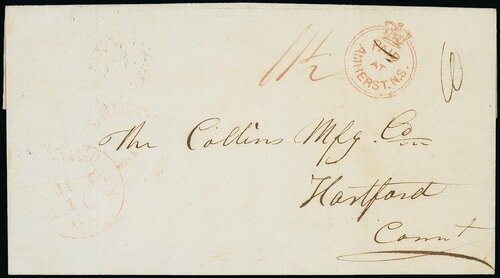 11½
PAID
AT
AMHERST. N.S.
6
The Collins Mfg. Co
Hartford
Connt
JUN
10